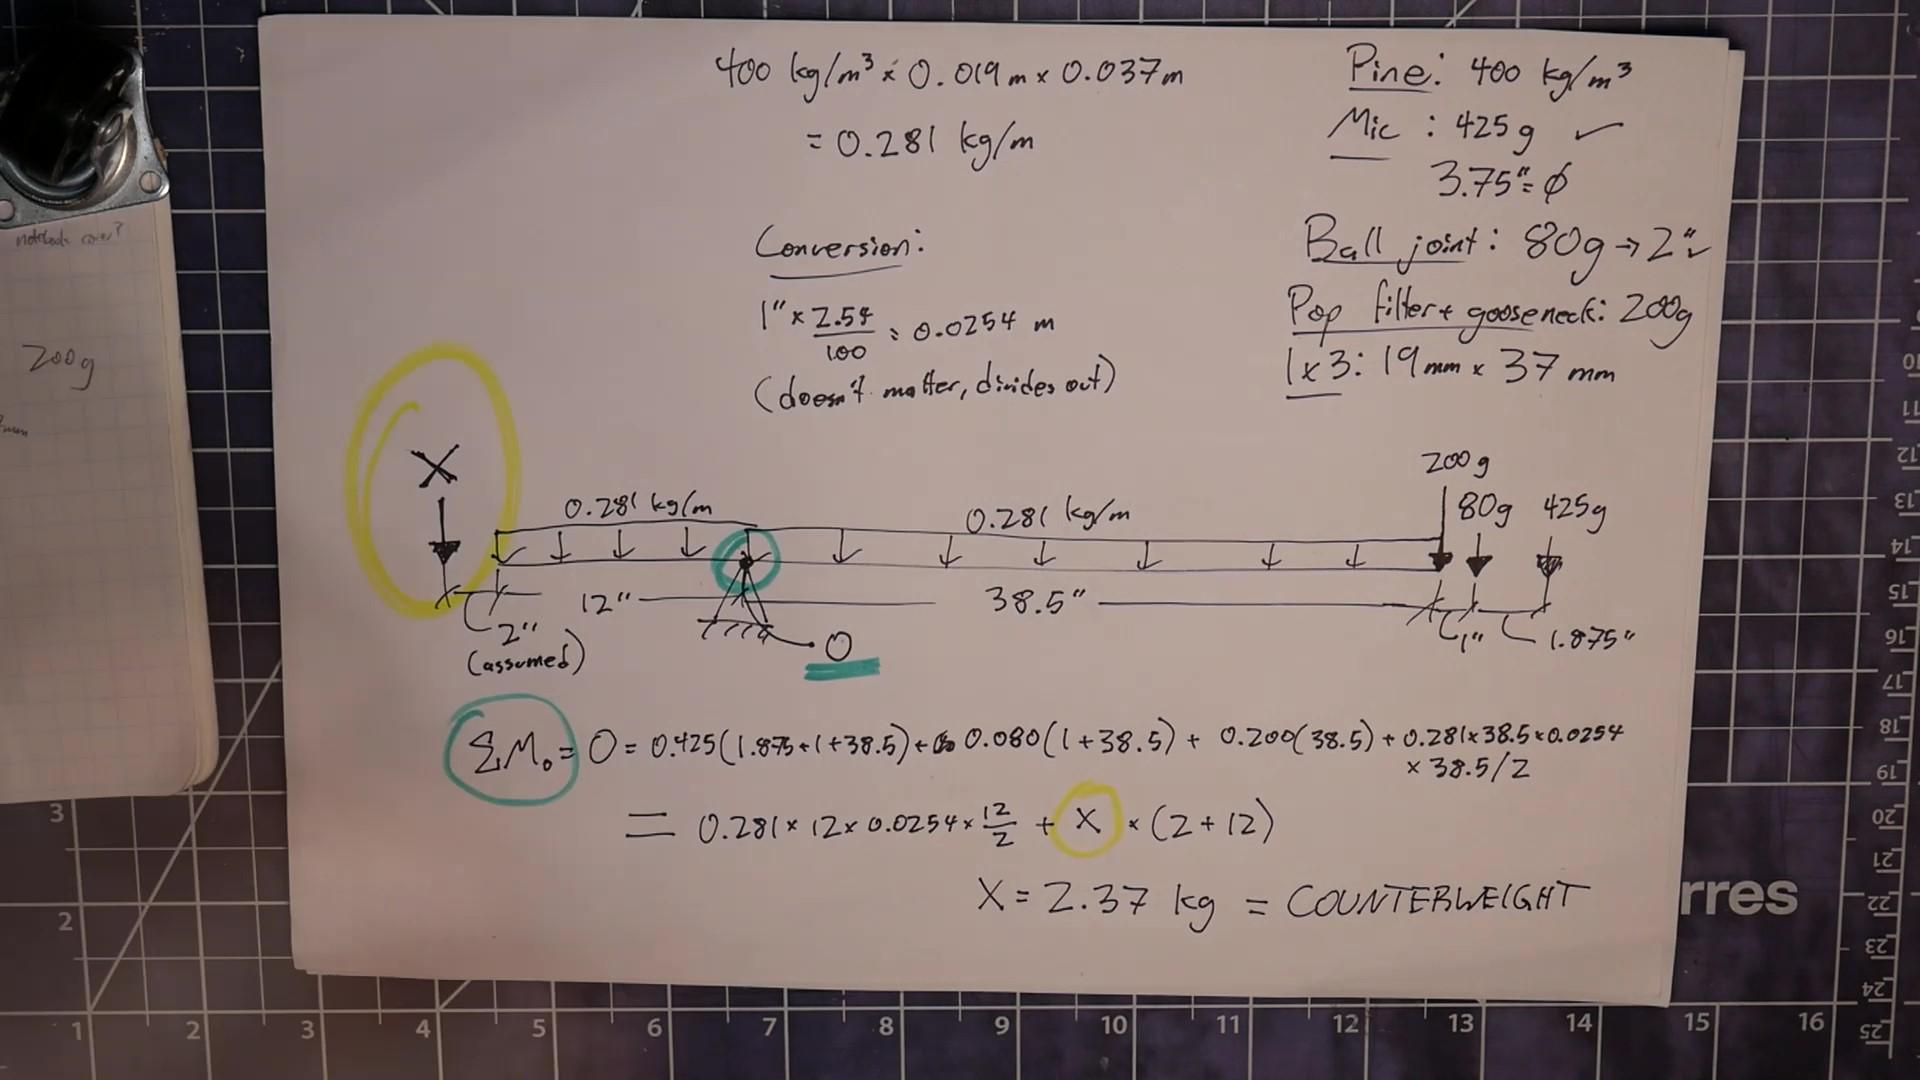 400 kg/m³ × 0.019 m × 0.037 m
= 0.281 kg/m
Pine: 400 kg/m³
Mic : 425 g ✓
3.75" = ϕ
Ball joint: 80g → 2" ✓
Pop filter + gooseneck: 200g
1 x 3: 19 mm x 37 mm
Conversion:
1" × 2.54/100 = 0.0254 m
(doesn't matter, divides out)
notebook cover?
200g
X
0.281 kg/m
0.281 kg/m
200 g
80g
425g
12"
38.5"
2"
(assumed)
O
1"
1.875"
ΣMₒ = 0 = 0.425(1.875+1+38.5) + 0.080(1+38.5) + 0.200(38.5) + 0.281×38.5×0.0254
× 38.5/2
= 0.281 × 12 × 0.0254 × 12/2 + X × (2 + 12)
X = 2.37 kg = COUNTERWEIGHT
rres
3
2
1 2 3 4 5 6 7 8 9 10 11 12 13 14 15 16
10
11
12
13
14
15
16
17
18
19
20
21
22
23
24
25